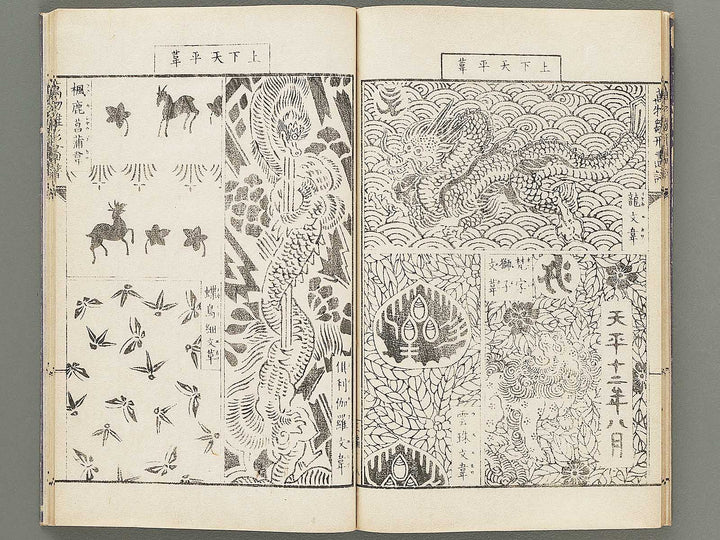 上下天平韋
萬物雛形画譜
龍文韋
天平十二年八月
梵字
獅子
文韋
雲珠文韋
上下天平韋
倶利伽羅文韋
蝶鳥細文韋
楓鹿菖蒲韋